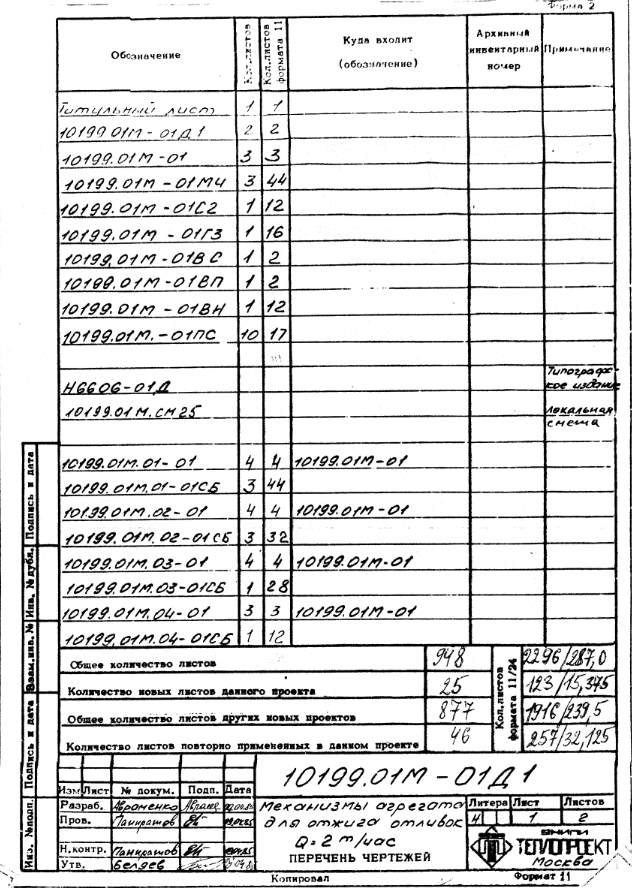 Форма 2
Обозначение Кол.листов Кол.листов формата 11 Куда входит (обозначение) Архивный инвентарный номер Примечание
Титульный лист 1 1
10199.01М-01Д1 2 2
10199.01М-01 3 3
10199.01М-01МЧ 3 44
10199.01М-01С2 1 12
10199.01М-01Г3 1 16
10199.01М-01ВС 1 2
10199.01М-01ВП 1 2
10199.01М-01ВН 1 12
10199.01М.-01ПС 10 17
Н6606-01Д Типографс-
кое издание
10199.01М.СМ25 локальная
смета
10199.01М.01-01 4 4 10199.01М-01
10199.01М.01-01СБ 3 44
10199.01М.02-01 4 4 10199.01М-01
10199.01М.02-01СБ 3 32
10199.01М.03-01 4 4 10199.01М-01
10199.01М.03-01СБ 1 28
10199.01М.04-01 3 3 10199.01М-01
10199.01М.04-01СБ 1 12
Общее количество листов 948 Кол.листов формата 11/24 2296/287,0
Количество новых листов данного проекта 25 123/15,375
Общее количество листов других новых проектов 877 1916/239,5
Количество листов повторно примененных в данном проекте 46 257/32,125
Подпись и дата
Инв. № дубл.
Взам.инв. №
Подпись и дата
Инв. №подл.
10199.01М-01Д1
Изм Лист № докум. Подп. Дата
Разраб. Авроменко
Пров. Панкрашов
Н.контр. Панкрашов
Утв. Беляев
Механизмы агрегата
для отжига отливок
Q=2 т/час
ПЕРЕЧЕНЬ ЧЕРТЕЖЕЙ
Литера Лист Листов
И 1 2
ВНИПИ
ТЕПЛОПРОЕКТ
Москва
Копировал Формат 11